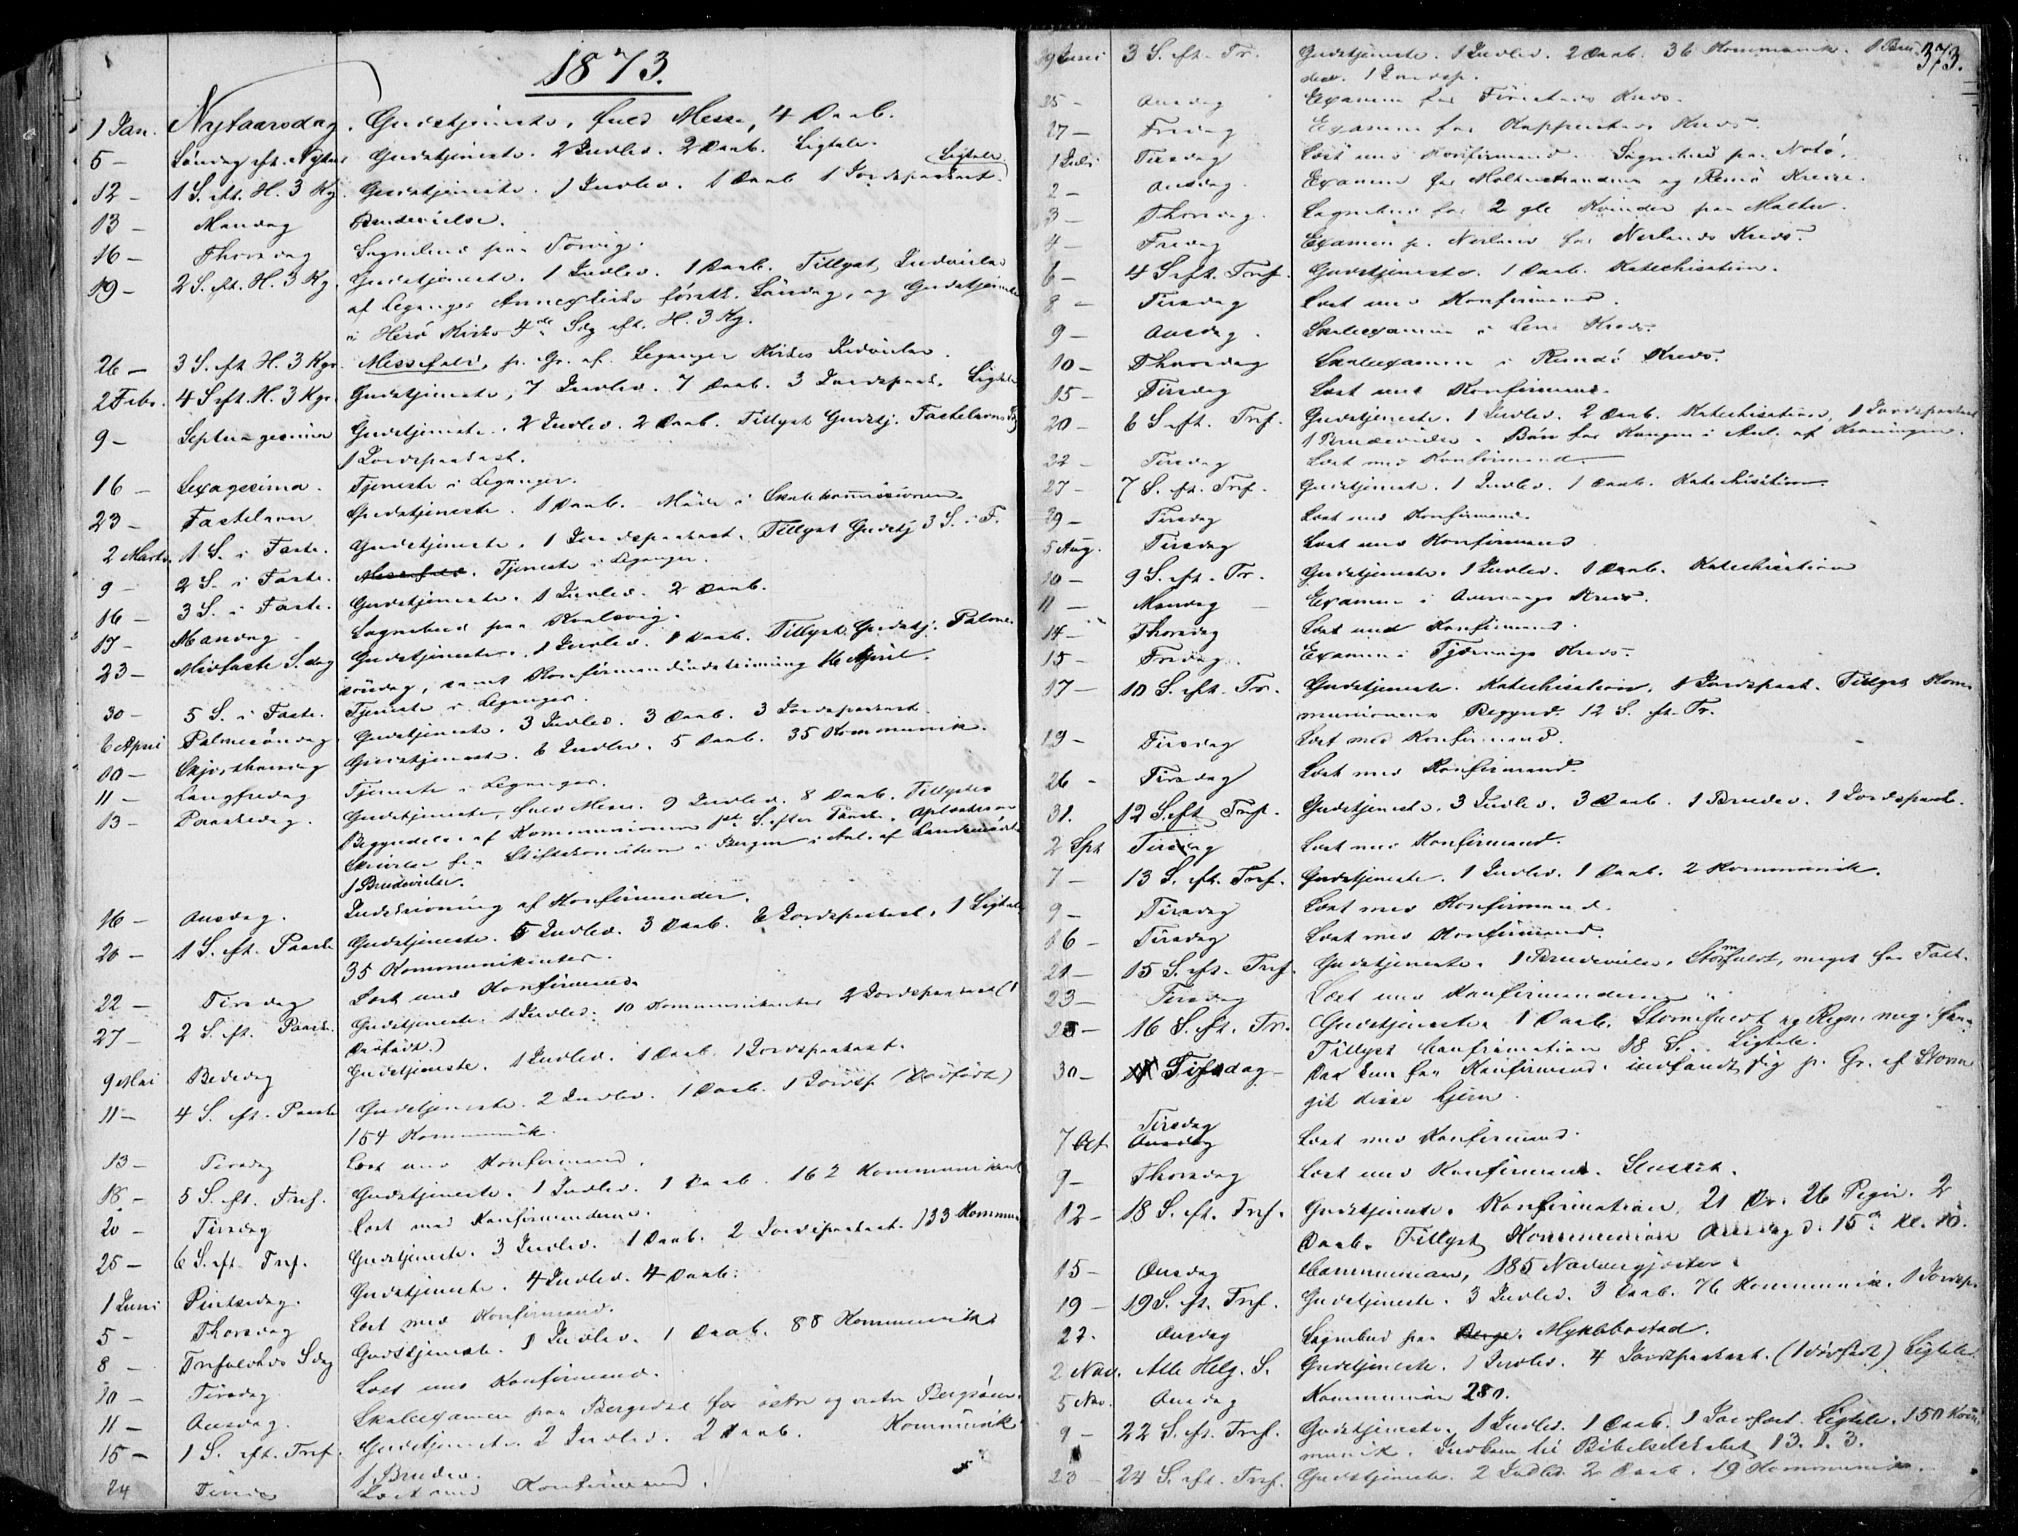 1873.
1 Jan. Nytaarsdag. Gudstjeneste, fuld Messe, 4 Daab.
5 — Søndag eft. Nytaar Gudstjeneste. 2 Indled. 2 Daab. Ligtale.
12 — 1 S. eft. H. 3 Kg. Gudstjeneste. 1 Indled. 1 Daab 1 Jordspaakast. Ligtale.
13 — Mandag Brudevielse.
16 — Thorsdag Sognebud paa
19 — 2 S. eft. H. 3 Kg. Gudstjeneste. 1 Indled. 1 Daab. Tillyst Indvielse
af Leganger Annexkirke førstk. Søndag, og Gudstjeneste
i Herø Kirke 4de Sdg eft. H. 3 Kg.
26 — 3 S. eft H. 3 Kgr. Messefald, p. Gr. af Leganger Kirkes Indvielse.
2 Febr. 4 S eft. H. 3 Kgr. Gudstjeneste, 7 Indled. 7 Daab. 3 Jordspaak. Ligtale
9 — Septuagesima Gudstjeneste. 2 Indled. 2 Daab. Tillyst Gudstj. Fastelavns
1 Jordspaakast.
16 — Sexagesima. Tjeneste i Leganger.
23 — Fastelavn Gudstjeneste. 1 Daab. Møde i Skolekommissionen.
2 Marts 1 S. i Faste. Gudstjeneste. 1 Jordspaakast. Tillyst Gudstj 3 S. i F.
9 — 2 S. i Faste. Messefald. Tjeneste i Leganger.
16 — 3 S. i Faste. Gudstjeneste. 1 Indled. 2 Daab.
17 — Mandag Sognebud paa Kvalsvig.
23 — Midfaste S.dag Gudstjeneste. 1 Indled. 1 Daab. Tillyst Gudstj. Palme-
søndag, samt Konfirmandindskrivning 16 April.
30 — 5 S. i Faste. Tjeneste i Leganger.
6 April Palmesøndag Gudstjeneste. 3 Indled. 3 Daab. 3 Jordspaakast.
10 — Skjærthorsdag Gudstjeneste. 6 Indled. 5 Daab. 35 Kommunik.
11 — Langfredag Tjeneste i Leganger.
13 — Paaskedag. Gudstjeneste, fuld Messe. 9 Indled. 8 Daab. Tillystes
Begyndelse af Kommunionen 1ste S. efter Paaske. Oplæstes en
Skrivelse fra Stiftskomiteen i Bergen i Anl. af Landsmødet
1 Brudevielse.
16 — Onsdag. Indskrivning af Konfirmander.
20 — 1 S. eft. Paaske Gudstjeneste. 5 Indled. 3 Daab. 2 Jordspaakast. 1 Ligtale
35 Kommunikanter.
22 — Tirsdag Læst med Konfirmand.
27 — 2 S. eft. Paaske. Gudstjeneste. 1 Indled. 10 Kommunikanter 2 Jordspaakast (1
Dødfødt.)
9 Mai Bededag Gudstjeneste. 1 Indled. 1 Daab. 1 Jordspaakast.
11 — 4 S. eft. Paaske Gudstjeneste. 2 Indled. 1 Daab. 1 Jordsp. (Dødfødt)
154 Kommunik.
13 — Tirsdag Læst med Konfirmand.
18 — 5 S. eft. Gudstjeneste. 1 Indled. 1 Daab. 162 Kommunikant
20 — Tirsdag Læst med Konfirmanderne.
25 — 6 S. eft. Gudstjeneste. 3 Indled. 1 Daab. 2 Jordspaakast. 133 Kommun
1 Juni Pintsedag. Gudstjeneste. 4 Indled. 4 Daab.
5 — Thorsdag Læst med Konfirmand.
8 — Trefoldheds Sdag Gudstjeneste. 1 Indled. 1 Daab. 88 Kommunik.
10 — Tirsdag Læst med Konfirmand.
11 — Onsdag. Skoleexamen paa for østre og vestre
15 — 1 S. eft. Tref. Gudstjeneste 2 Indled. 2 Daab. Kommunik
1 Brudev.
24 Tirsdag Læst med Konfirmand.
373.
29 Juni 3 S. eft. Tr. Gudstjeneste. 1 Indled. 2 Daab. 36 Kommunik. 1 Bru-
dev. 1 Jordsp.
25 — Onsdag Examen for Kreds.
27 — Fredag Examen for Kreds.
1 Juli Tirsdag Læst med Konfirmand. Sognebud paa
2 — Onsdag. Examen for og Remø Kredse.
3 — Thorsdag. Sognebud for 2 gle Kvinder paa
4 — Fredag Examen p. Nerland for Nerlands Kreds.
6 — 4 S eft. Tref. Gudstjeneste. 1 Daab. Katechisation.
8 — Tirsdag Læst med Konfirmand.
9 — Onsdag. Skoleexamen i Kreds.
10 — Thorsdag Skoleexamen i Rundø Kreds.
15 — Tirsdag Læst med Konfirmand.
20 — 6 S eft. Tref. Gudstjeneste. 1 Indled. 2 Daab. Katechisation. 1 Jordspaakast
1 Brudevielse. Bøn for Kongen i Anl. af Kroningen.
22 — Tirsdag Læst med Konfirmand.
27 — 7 S. eft. Tref. Gudstjeneste. 1 Indled. 1 Daab. Katechisation.
29 — Tirsdag Læst med Konfirmand.
5 Aug. Tirsdag Læst med Konfirmand
10 — 9 S. eft. Tr. Gudstjeneste. 1 Indled. 1 Daab. Katechisation
11 — Mandag Examen i Kreds.
14 — Thorsdag Læst med Konfirmand.
15 — Fredag. Examen i Kreds.
17 — 10 S. eft. Tr. Gudstjeneste. Katechisation. 1 Jordspaak. Tillyst Kom-
munionens Begynd. 12 S. eft. Tr.
19 — Tirsdag Læst med Konfirmand.
26 — Tirsdag Læst med Konfirmand.
31. 12 S. eft Tref. Gudstjeneste. 3 Indled. 3 Daab. 1 Brudev. 1 Jordspaak.
2 Spt Tirsdag Læst med Konfirmand.
7 — 13 S. eft. Tref. Gudstjeneste. 1 Indled. 1 Daab. 2 Kommunik.
9 — Tirsdag Læst med Konfirmand.
16 — Tirsdag Læst med Konfirmand.
21 — 15 S. eft. Tref. Gudstjeneste. 1 Brudevielse. Stormfuldt, meget faa Folk.
23 — Tirsdag Læst med Konfirmanderne
28 — 16 S. eft. Tr. Gudstjeneste. 1 Daab. Stormfuldt og Regn. meg. faa.
Tillyst Confirmation 18 S. Ligtale.
30 — Tirsdag — Da kun faa Konfirmand. indfandt sig p. Gr. af Storm
gik disse hjem.
7 Oct Tirsdag Onsdag Læst med Konfirmand.
9 — Thorsdag Læst med Konfirmand. Sluttet.
12 — 18 S. eft. Tref. Gudstjeneste. Konfirmation, 21 Dr. 26 Piger. 2
Daab. Tillyst Kommunion Onsdag d. 15de kl. 10.
15 — Onsdag Communion, 185 Nadvergjæster.
19 — 19 S. eft. Tref. Gudstjeneste. 3 Indled. 3 Daab. 76 Kommunik. 1 Jordsp.
22. Onsdag Sognebud paa Myklebostad.
2 Nov. Alle Helg. S. Gudstjeneste. 1 Indled. 4 Jordspaakast. (1 dødfødt) Ligtale
5 Nov. Onsdag Kommunion 280.
9 — 22 S. eft. Tref. Gudstjeneste. 1 Indled. 1 Daab. 1 Ligtale. 150 Kom-
munik. Indkom til Bibelselskabet 13. 1. 3.
23 — 24 S. eft. Tref. Gudstjeneste. 2 Indled. 2 Daab. 19 Kommunik.